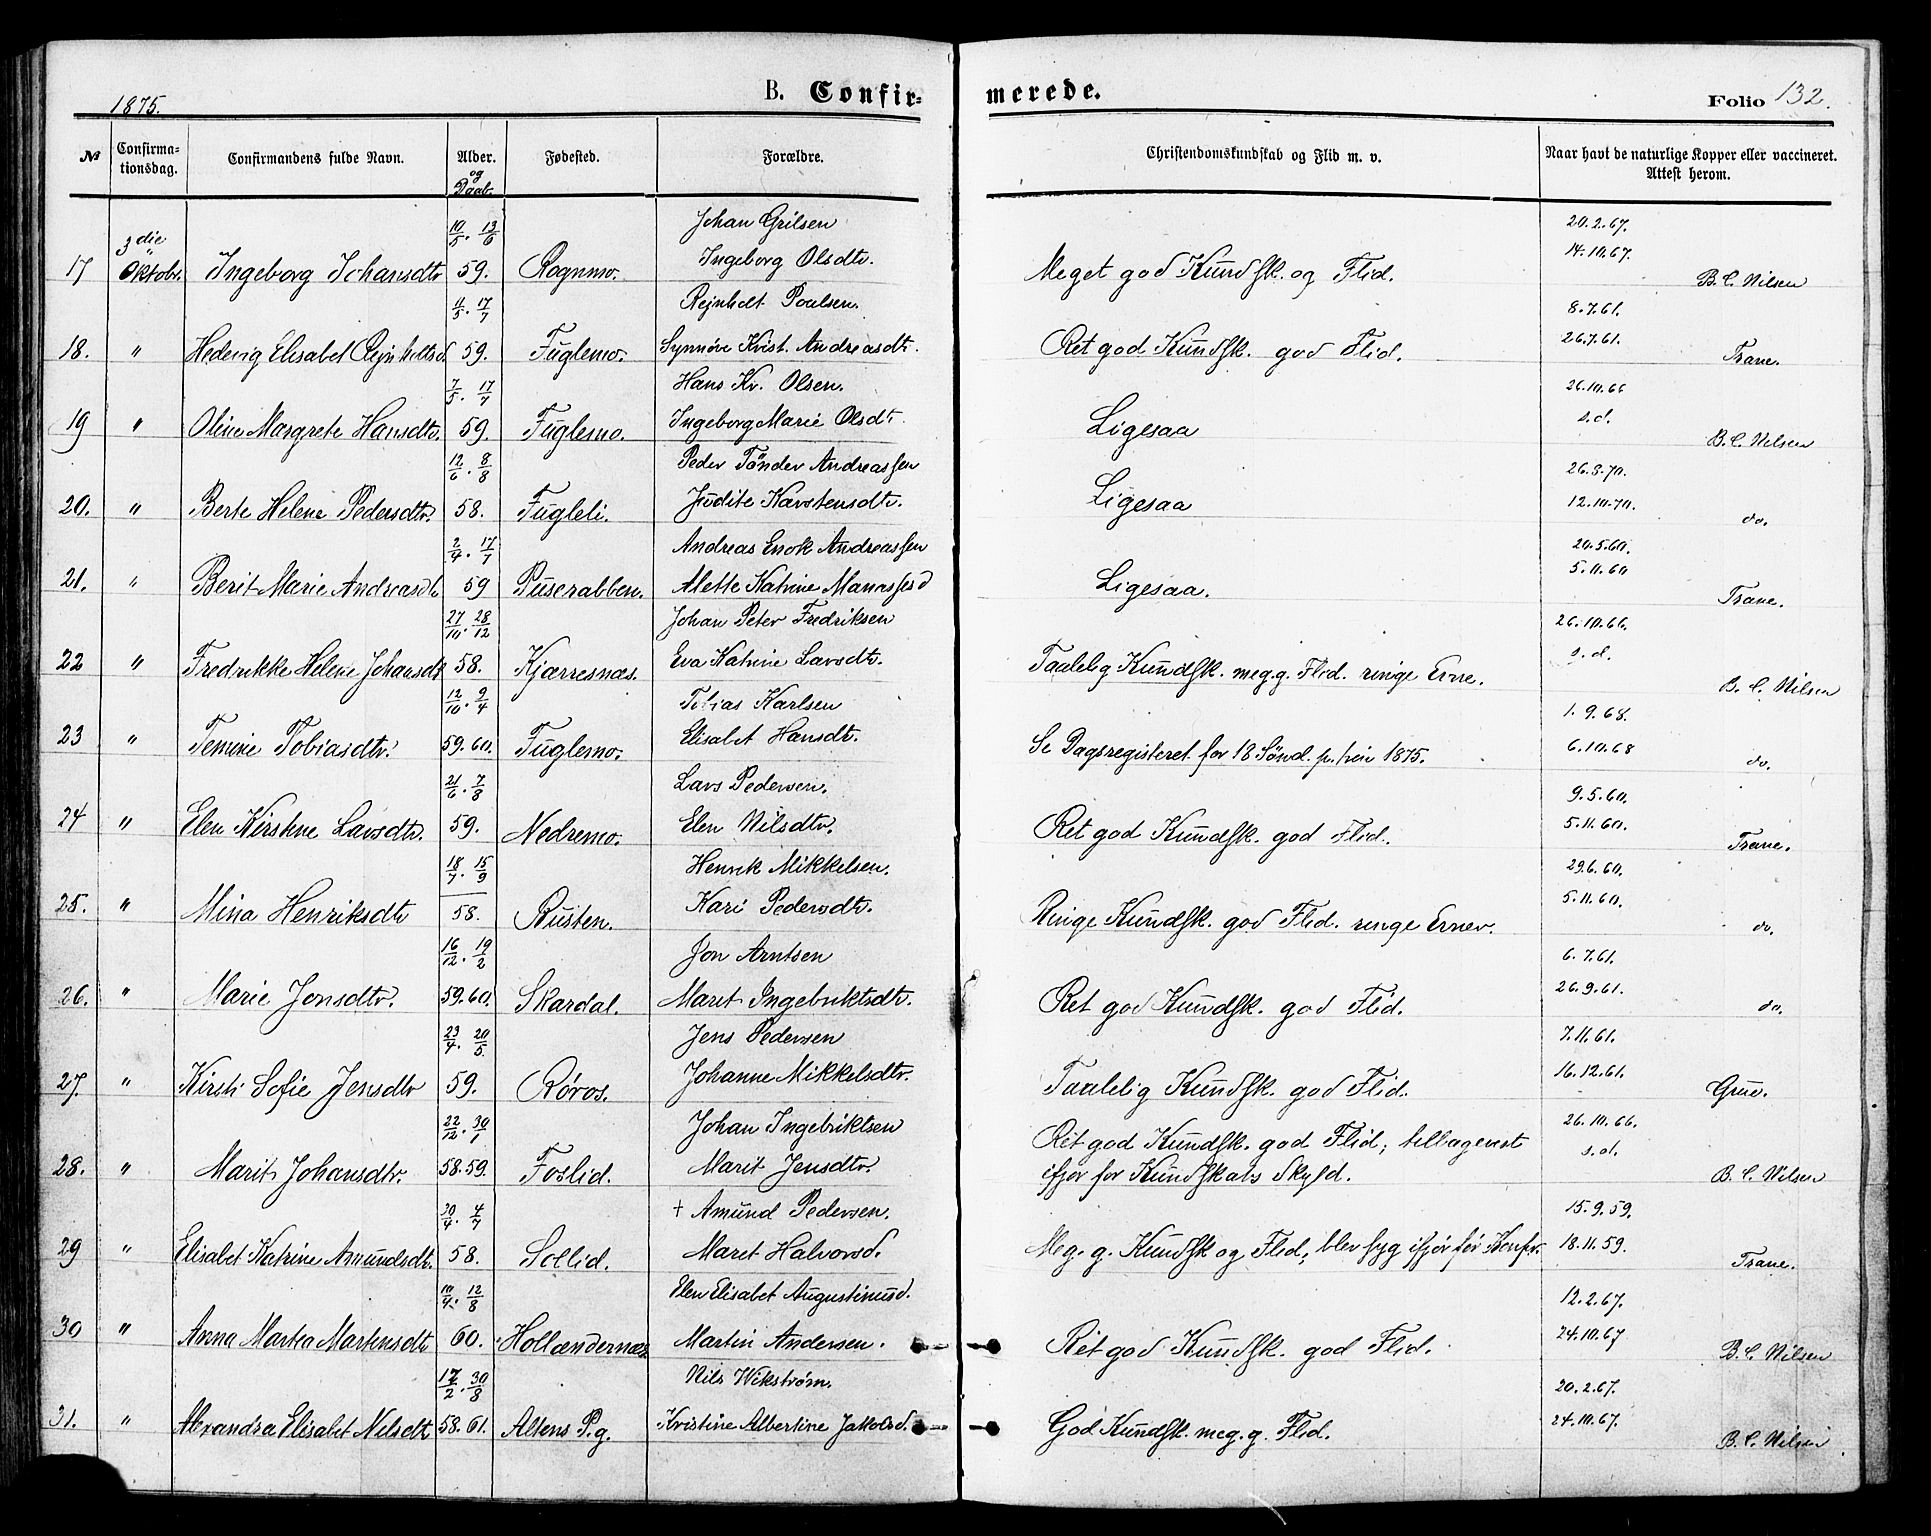 1875.
B. Confir-
merede.
Folio 132.
№ Confirma-tionsdag. Confirmandens fulde Navn. Alder. og Daab. Fødested. Forældre. Christendomskundskab og Flid m. v. Naar havt de naturlige Kopper eller vaccineret. Attest herom.
10/5. 13/6 Johan Grilsen 20.2.67.
3die Ingeborg Olsdtr. 14.10.67.
17 Oktobr. Ingeborg Johansdtr 59. Rognmo. Meget god Kundsk. og Flid. B. C. Nilsen
11/5. 17/7 Rejnholt Poulsen. 8.7.61.
18. " Hedevig Elisabet Rejnholtsd 59. Fuglemo. Synnøve Krist. Andreasdtr. Ret god Kundsk. god Flid. 26.7.61. Trane.
7/5. 17/7 Hans Kr. Olsen. 26.10.66
19 " Oline Margrete Hansdtr. 59. Fuglemo. Ingeborg Marie Olsdtr. Ligesaa s.d. B. C. Nilsen
12/6. 8/8 Peder Tønder Andreassen 26.3.70.
20. " Berte Helene Pedersdtr. 58. Fugleli. Judite Karstensdtr. Ligesaa 12.10.70. do.
2/4. 17/7 Andreas Enok Andreassen 20.5.60.
21. " Berit Marie Andreasdtr 59 Puserabben. Alette Katrine Manassesd Ligesaa. 5.11.60 Trane.
27/10. 28/12 Johan Peter Fredriksen 26.10.66.
22 " Fredrikke Helene Johansdtr 58. Kjærresnæs. Eva Katrine Larsdtr. Taalelig Kundsk. meg. g. Flid. ringe Evne. s.d. B. C. Nilsen
12/10. 9/4 Tobias Karlsen 1.9.68.
23 " Temine Tobiasdtr. 59.60. Fuglemo. Elisabet Hansdtr. Se Dagsregisteret for 18 Sønd. p. trin 1875. 6.10.68 do.
21/6. 7/8 Lars Pedersen. 9.5.60.
24 " Elen Kirstine Larsdtr. 59. Nedremo. Elen Nilsdtr. Ret god Kundsk. god Flid. 5.11.60. Trane.
18/7. 15/9 Henrik Mikkelsen. 29.6.60.
25. " Mina Henriksdtr 58. Rusten. Kari Pedersdtr. Ringe Kundsk. god Flid. ringe Evner. 5.11.60. do.
16/12. 19/2 Jon Arntsen 6.7.61.
26. " Marie Jonsdtr. 59.60. Skardal. Marit Ingebriktsdtr. Ret god Kundsk. god Flid. 26.9.61. do.
23/4. 20/5 Jens Pedersen 7.11.61.
27. " Kirsti Sofie Jensdtr 59. Røros. Johanne Mikkelsdtr. Taalelig Kundsk. god Flid. 16.12.61. Grue.
22/12. 30/1 Johan Ingebriktsen Ret god Kundsk. god Flid; tillagenst 26.10.66.
28. " Marit Johansdtr. 58.59. Foslid. Marit Jensdtr. ifjor for Kundskabs Skyld. s.d. B. C. Nilsen
30/4. 4/7 + Amund Pedersen. 15.9.59.
29 " Elisabet Katrine Amundsdtr. 58. Sollid. Maret Halvorsd. Meg. g. Kundsk og Flid, blev syg ifjor før Konfr. 18.11.59. Trane.
10/4. 12/8 Elen Elisabet Augustinusd. 12.2.67.
30 " Anna Martea Martensdtr 60. Hollændernæs Martin Andersen. Ret god Kundsk. god Flid. 24.10.67 B. C. Nilsen
17/2. 30/8 Nils Wikstrøm. 20.2.67.
31. " Alexandra Elisabet Nilsdtr 58.61. Altens P.g. Kristine Albertine Jakobsd. God Kundsk. meg. g. Flid. 24.10.67. B. C. Nilsen